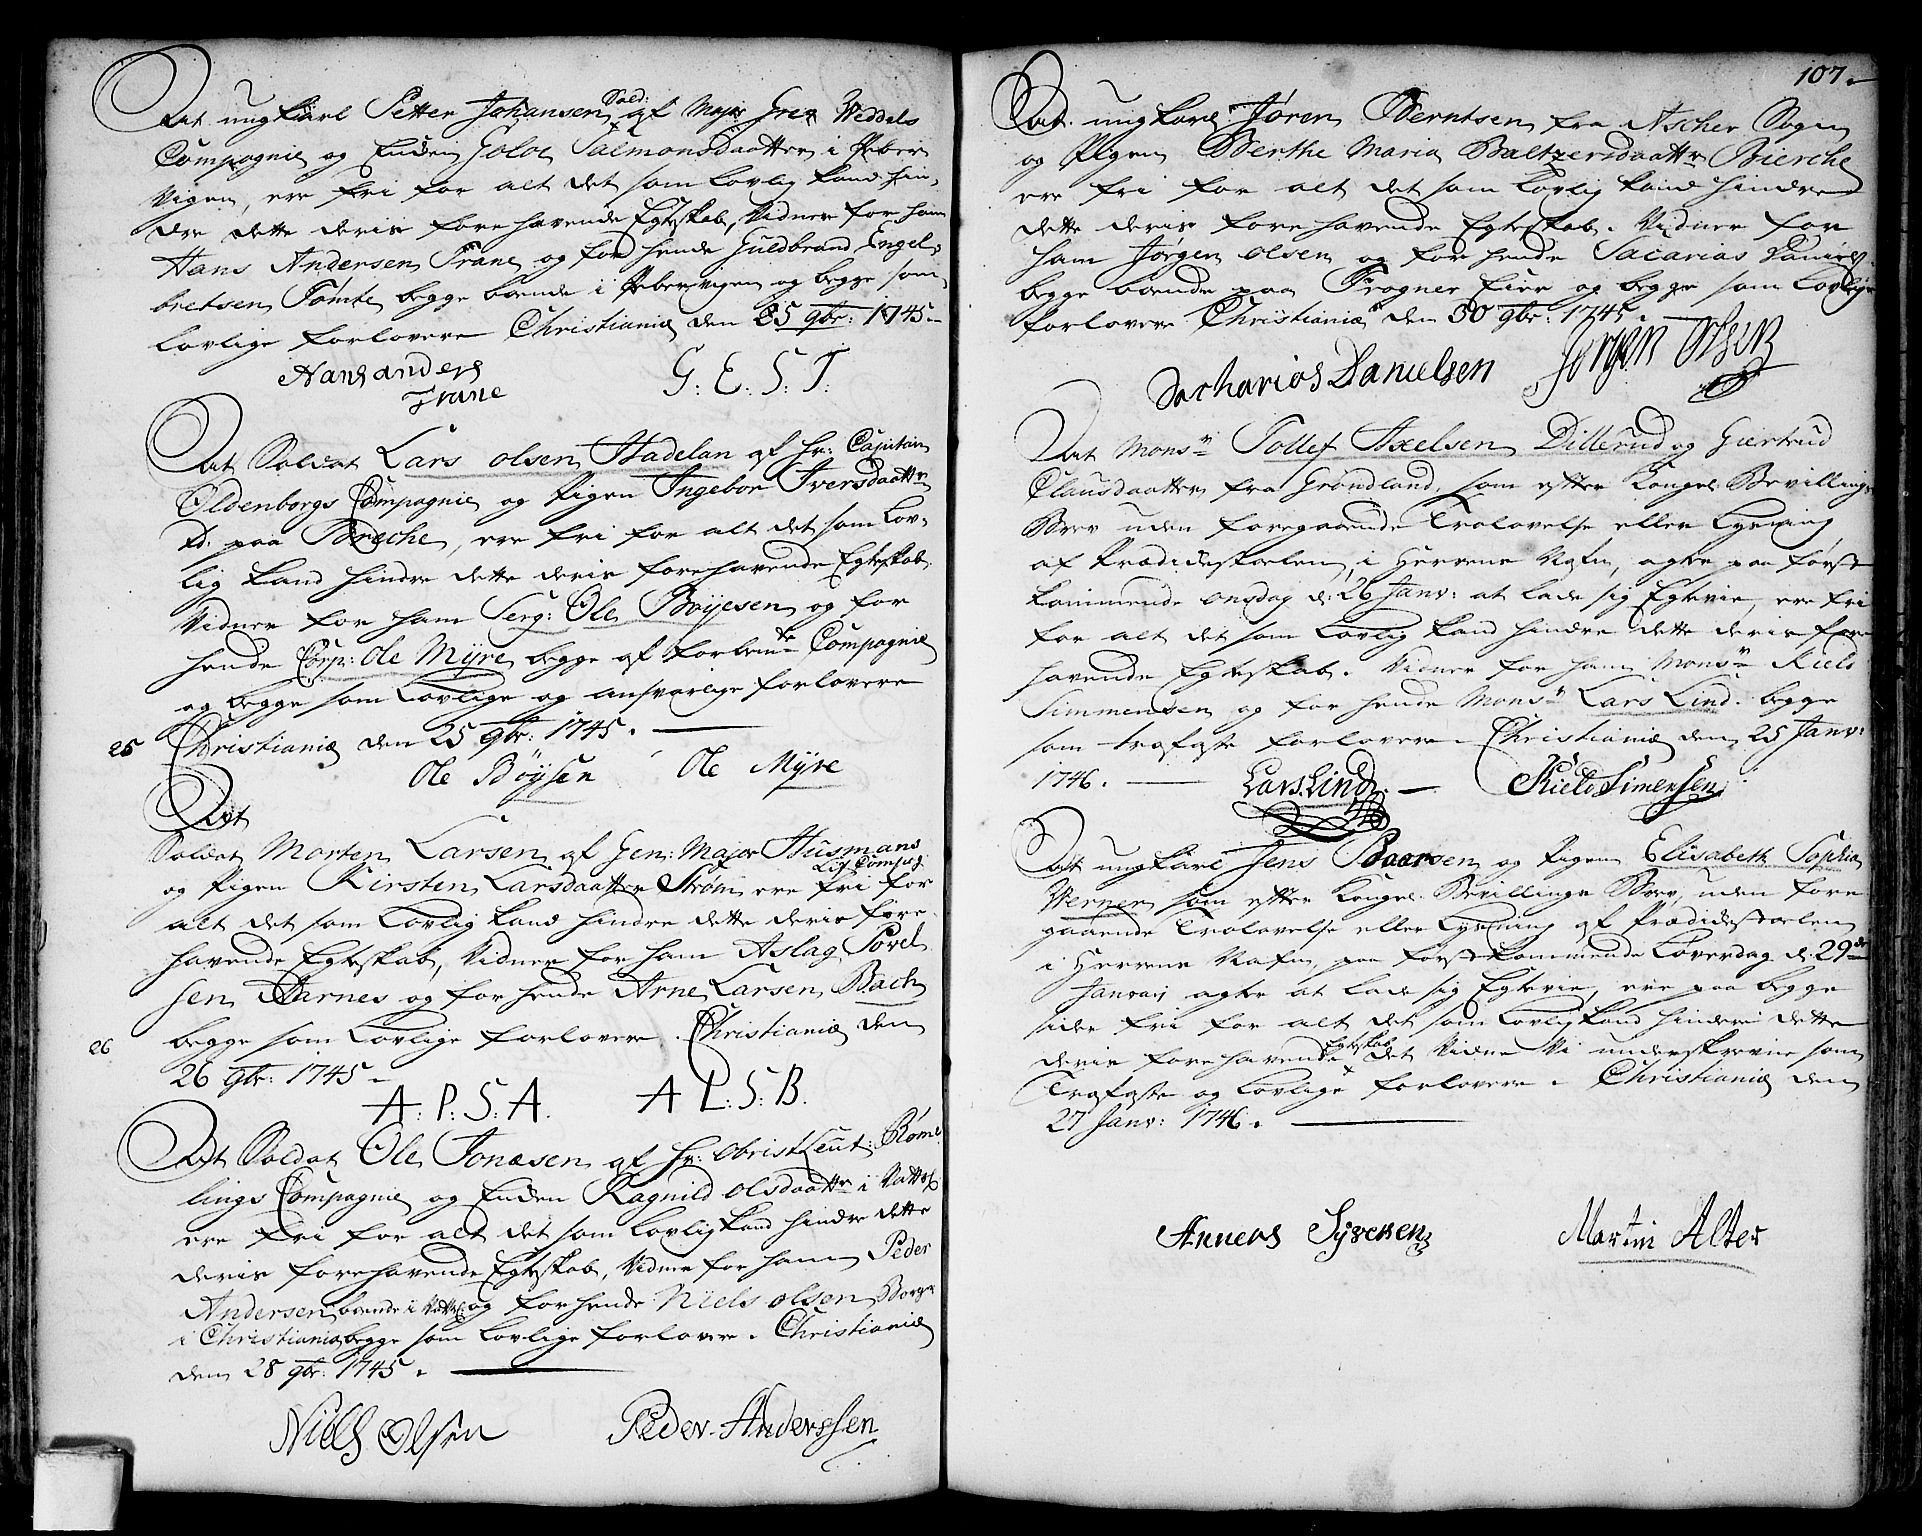 At ungKarl Petter Johansen Sold: af Majr Greg Weddels
Compagnie og Enchen Goloe Salmonsdaatter i Peber
Vigen, ere fri for alt det som Lovlig kand hin-
dre dette deris forehavende Egteskab, Vidner for ham
Hans Andersen Trane og for hende Guldbrand Engel-
bretsen Tømte begge boende i Pebervigen og begge som
lovlige forlovere Christiania den 25 9br: 1745.
Hans anders G: E: S: T:
Trane
At Soldat Lars Olsen Hadelan af hr: Capitain
Oldenborgs Compagnie og Pigen Ingebor Iversdaattr
td: paa Breche, ere fri for alt det som Lov-
lig kand hindre dette deris forehavende Egteskab
Vidner for ham Serg: Ole Böyesen og for
hende Corp: Ole Myre begge af forbemte Compagnie
og begge som Lovlige og ansvarlige forlovere
25 Christiania den 25 9br: 1745.
Ole Böysen Ole Myre
At
Soldat Morten Larsen af Gen: Major Husmans
Lif Compag:
og Pigen Kirsten Larsdaatter Strøm, ere fri for
alt det som Lovlig kand hindre dette deris fore-
havende Egteskab, Vidner for ham Aslag Povel
sen Aarnes og for hende Arne Larsen Bach
begge som Lovlige forlovere. Christiania den
26 26 9br: 1745.
A: P: S: A. A L: S: B.
At Soldat Ole Jonæsen af Hr: Obrist Leut: Røme
lings Compagnie og Enchen Ragnild Olsdaattr i
ere fri for alt det som Lovlig kand hindre dette
deris forehavende Egteskab, Vidner for ham Peder
Andersen boende i og for hende Niels Olsen Borger
i Christiania begge som Lovlige forlovere. Christiania
den 28 9br: 1745.
Niels Olsen Peder Anderssen
107.
At ungkarl Jøren Berntsen fra Ascher Sogn
og Pigen Berthe Maria Baltzersdaattr Bierche
ere fri for alt det som Lovlig kand hindre
dette deris forehavende Egteskab. Vidner for
ham Jørgen Olsen og for hende Sacarias Daniels
begge boende paa Frogner Eier og begge som Lovlige
forlovere Christiania den 30 9br: 1745.
Sacharios Danielsen Jørgen Olsen
At Monsr Tollef Axelsen Dillerud og Giertrud
Clausdaatter fra Grønland, som efter Kongel: Bevillings
Brev uden foregaaende Trolovelse eller Lysning
af Prædickestoelen, i Herrens Nafn, agter paa først
kommende onsdag d: 26 Janv: at lade sig Egtevie, ere fri
for alt det som Lovlig kand hindre dette deris fore
havende Egteskab. Vidner for ham Monsr Kield
Simmensen og for hende Monsr Lars Lind. begge
som trofaste forlovere. Christiania den 25 Janv:
1746. Lars Lind. Kield Simensen
At ungKarl Jens Baarsen og Pigen Elisabeth Sophia
Werner som efter Kongel. Bevillings Brev, uden fore
gaaende Trolovelse eller Lysning af Prædickestoelen
i Herrens Nafn, paa førstekommende Løverdag d: 29de
Januarj agter at lade sig Egtevie, ere paa begge
sider fri for alt det som Lovlig kand hindre dette
Egteskab
deris forehavende det Vidne Vi underskrevne som
Trofaste og Lovlige forlovere. Christiania den
27 Janv: 1746.
Anners Syversen Martin Alter